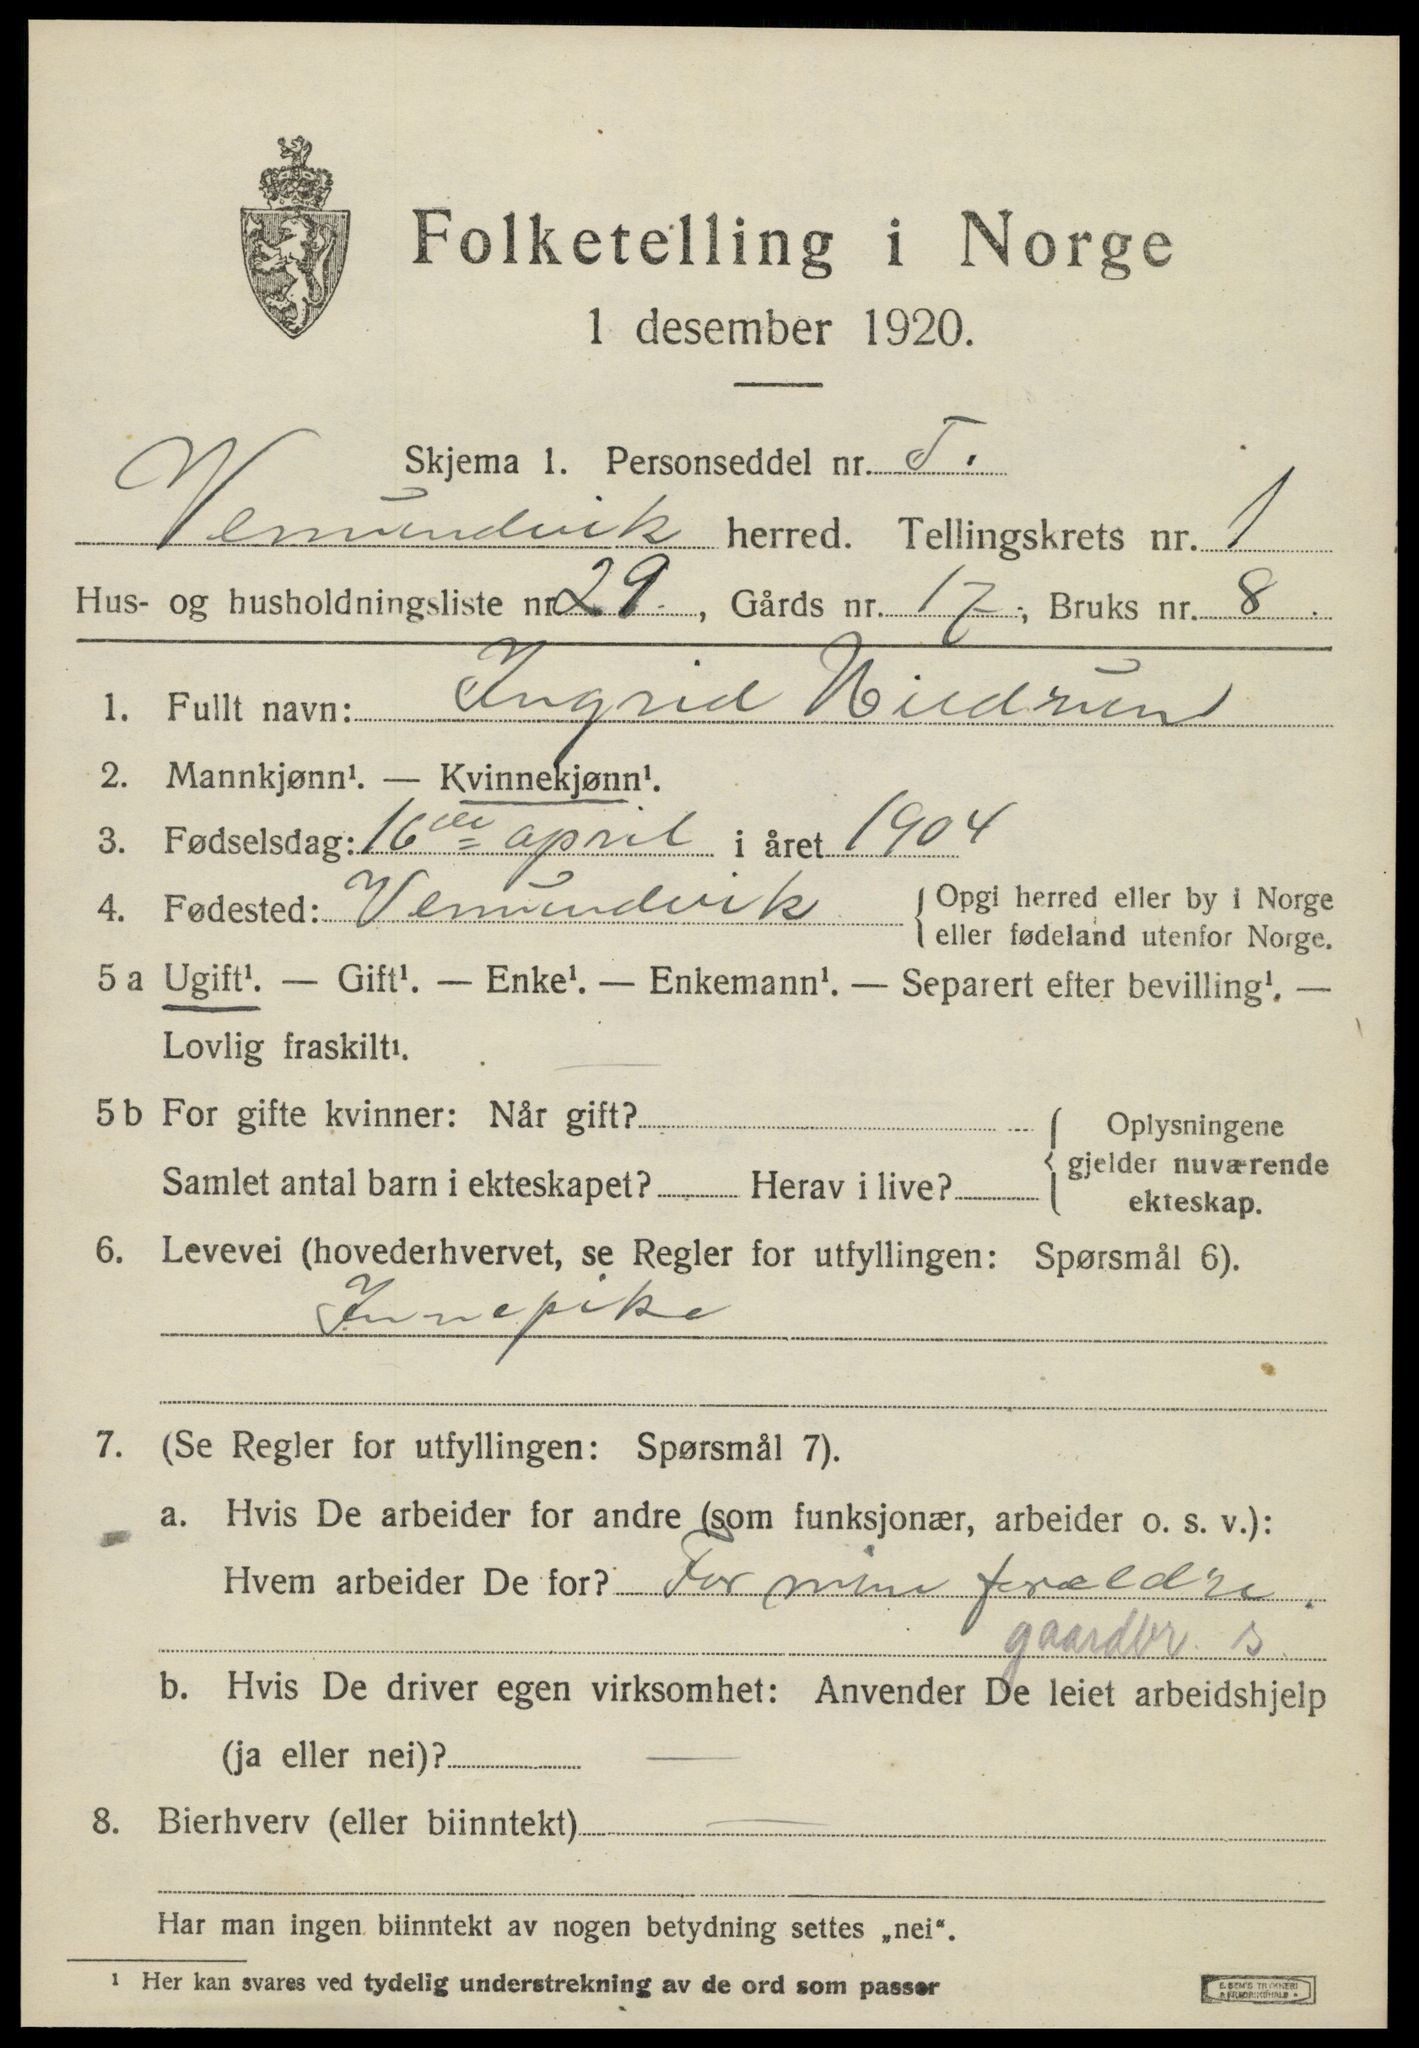 Folketelling i Norge
1 desember 1920.
Skjema 1. Personseddel nr. 5.
Vemundvik herred. Tellingskrets nr. 1
Hus- og husholdningsliste nr. 29., Gårds nr. 17, Bruks nr. 8.
1. Fullt navn: Ingrid Hildrum
2. Mannkjønn¹. — Kvinnekjønn¹.
3. Fødselsdag: 16de april i året 1904
4. Fødested: Vemundvik { Opgi herred eller by i Norge
eller fødeland utenfor Norge.
5 a Ugift¹. — Gift¹. — Enke¹. — Enkemann¹. — Separert efter bevilling¹. —
Lovlig fraskilt¹.
5 b For gifte kvinner: Når gift? { Oplysningene
gjelder nuværende
Samlet antal barn i ekteskapet? Herav i live? ekteskap.
6. Levevei (hovederhvervet, se Regler for utfyllingen: Spørsmål 6).
Innepike
7. (Se Regler for utfyllingen: Spørsmål 7).
a. Hvis De arbeider for andre (som funksjonær, arbeider o. s. v.):
Hvem arbeider De for? For mine forældre.
gaardbr. s
b. Hvis De driver egen virksomhet: Anvender De leiet arbeidshjelp
(ja eller nei)? —
8. Bierhverv (eller biinntekt) —
Har man ingen biinntekt av nogen betydning settes „nei“.
¹ Her kan svares ved tydelig understrekning av de ord som passer
E. SEM'S TRYKKERI
FREDRIKSHALD